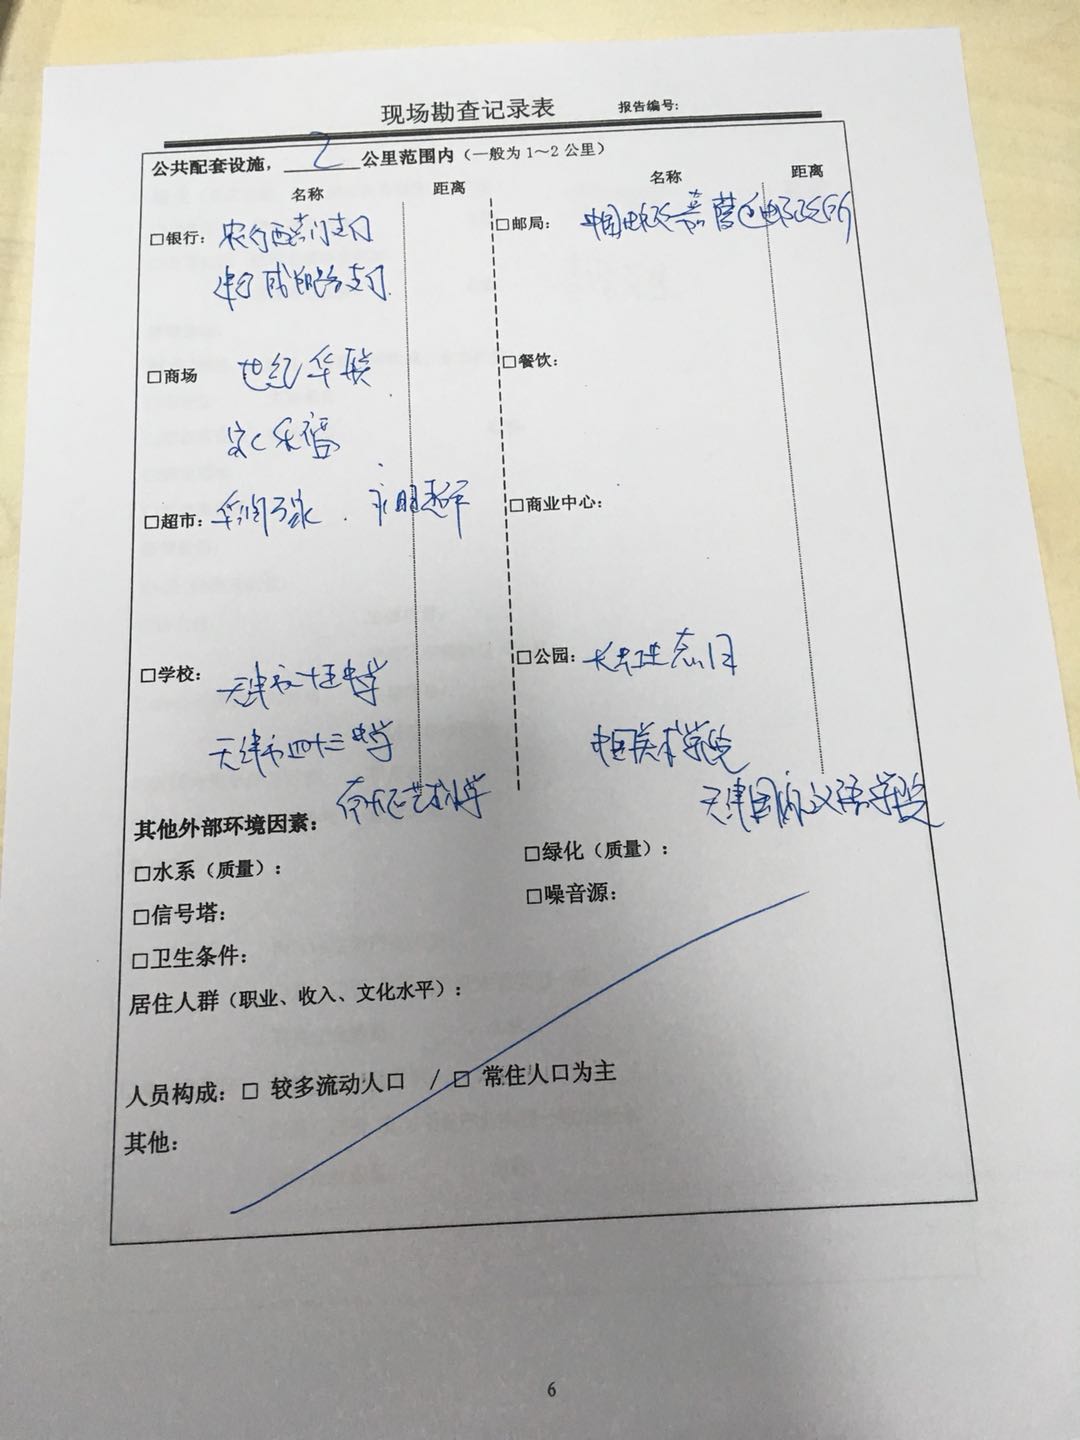 现场勘查记录表 报告编号:
公共配套设施，2公里范围内（一般为1～2公里）
名称 距离 名称 距离
□银行： 农行西 支行
建行 支行
□邮局： 中国邮政嘉 营 邮政所
□商场 世纪华联
家乐福
□餐饮：
□超市：华润万家 . 永旺超市
□商业中心：
□学校： 天津市 十五中学
天津市四十三中学
艺术中学
□公园： 长虹生态园
中国美术学院
天津国际汉语学院
其他外部环境因素：
□水系（质量）： □绿化（质量）：
□信号塔： □噪音源：
□卫生条件：
居住人群（职业、收入、文化水平）：
人员构成：□ 较多流动人口 /□ 常住人口为主
其他：
6